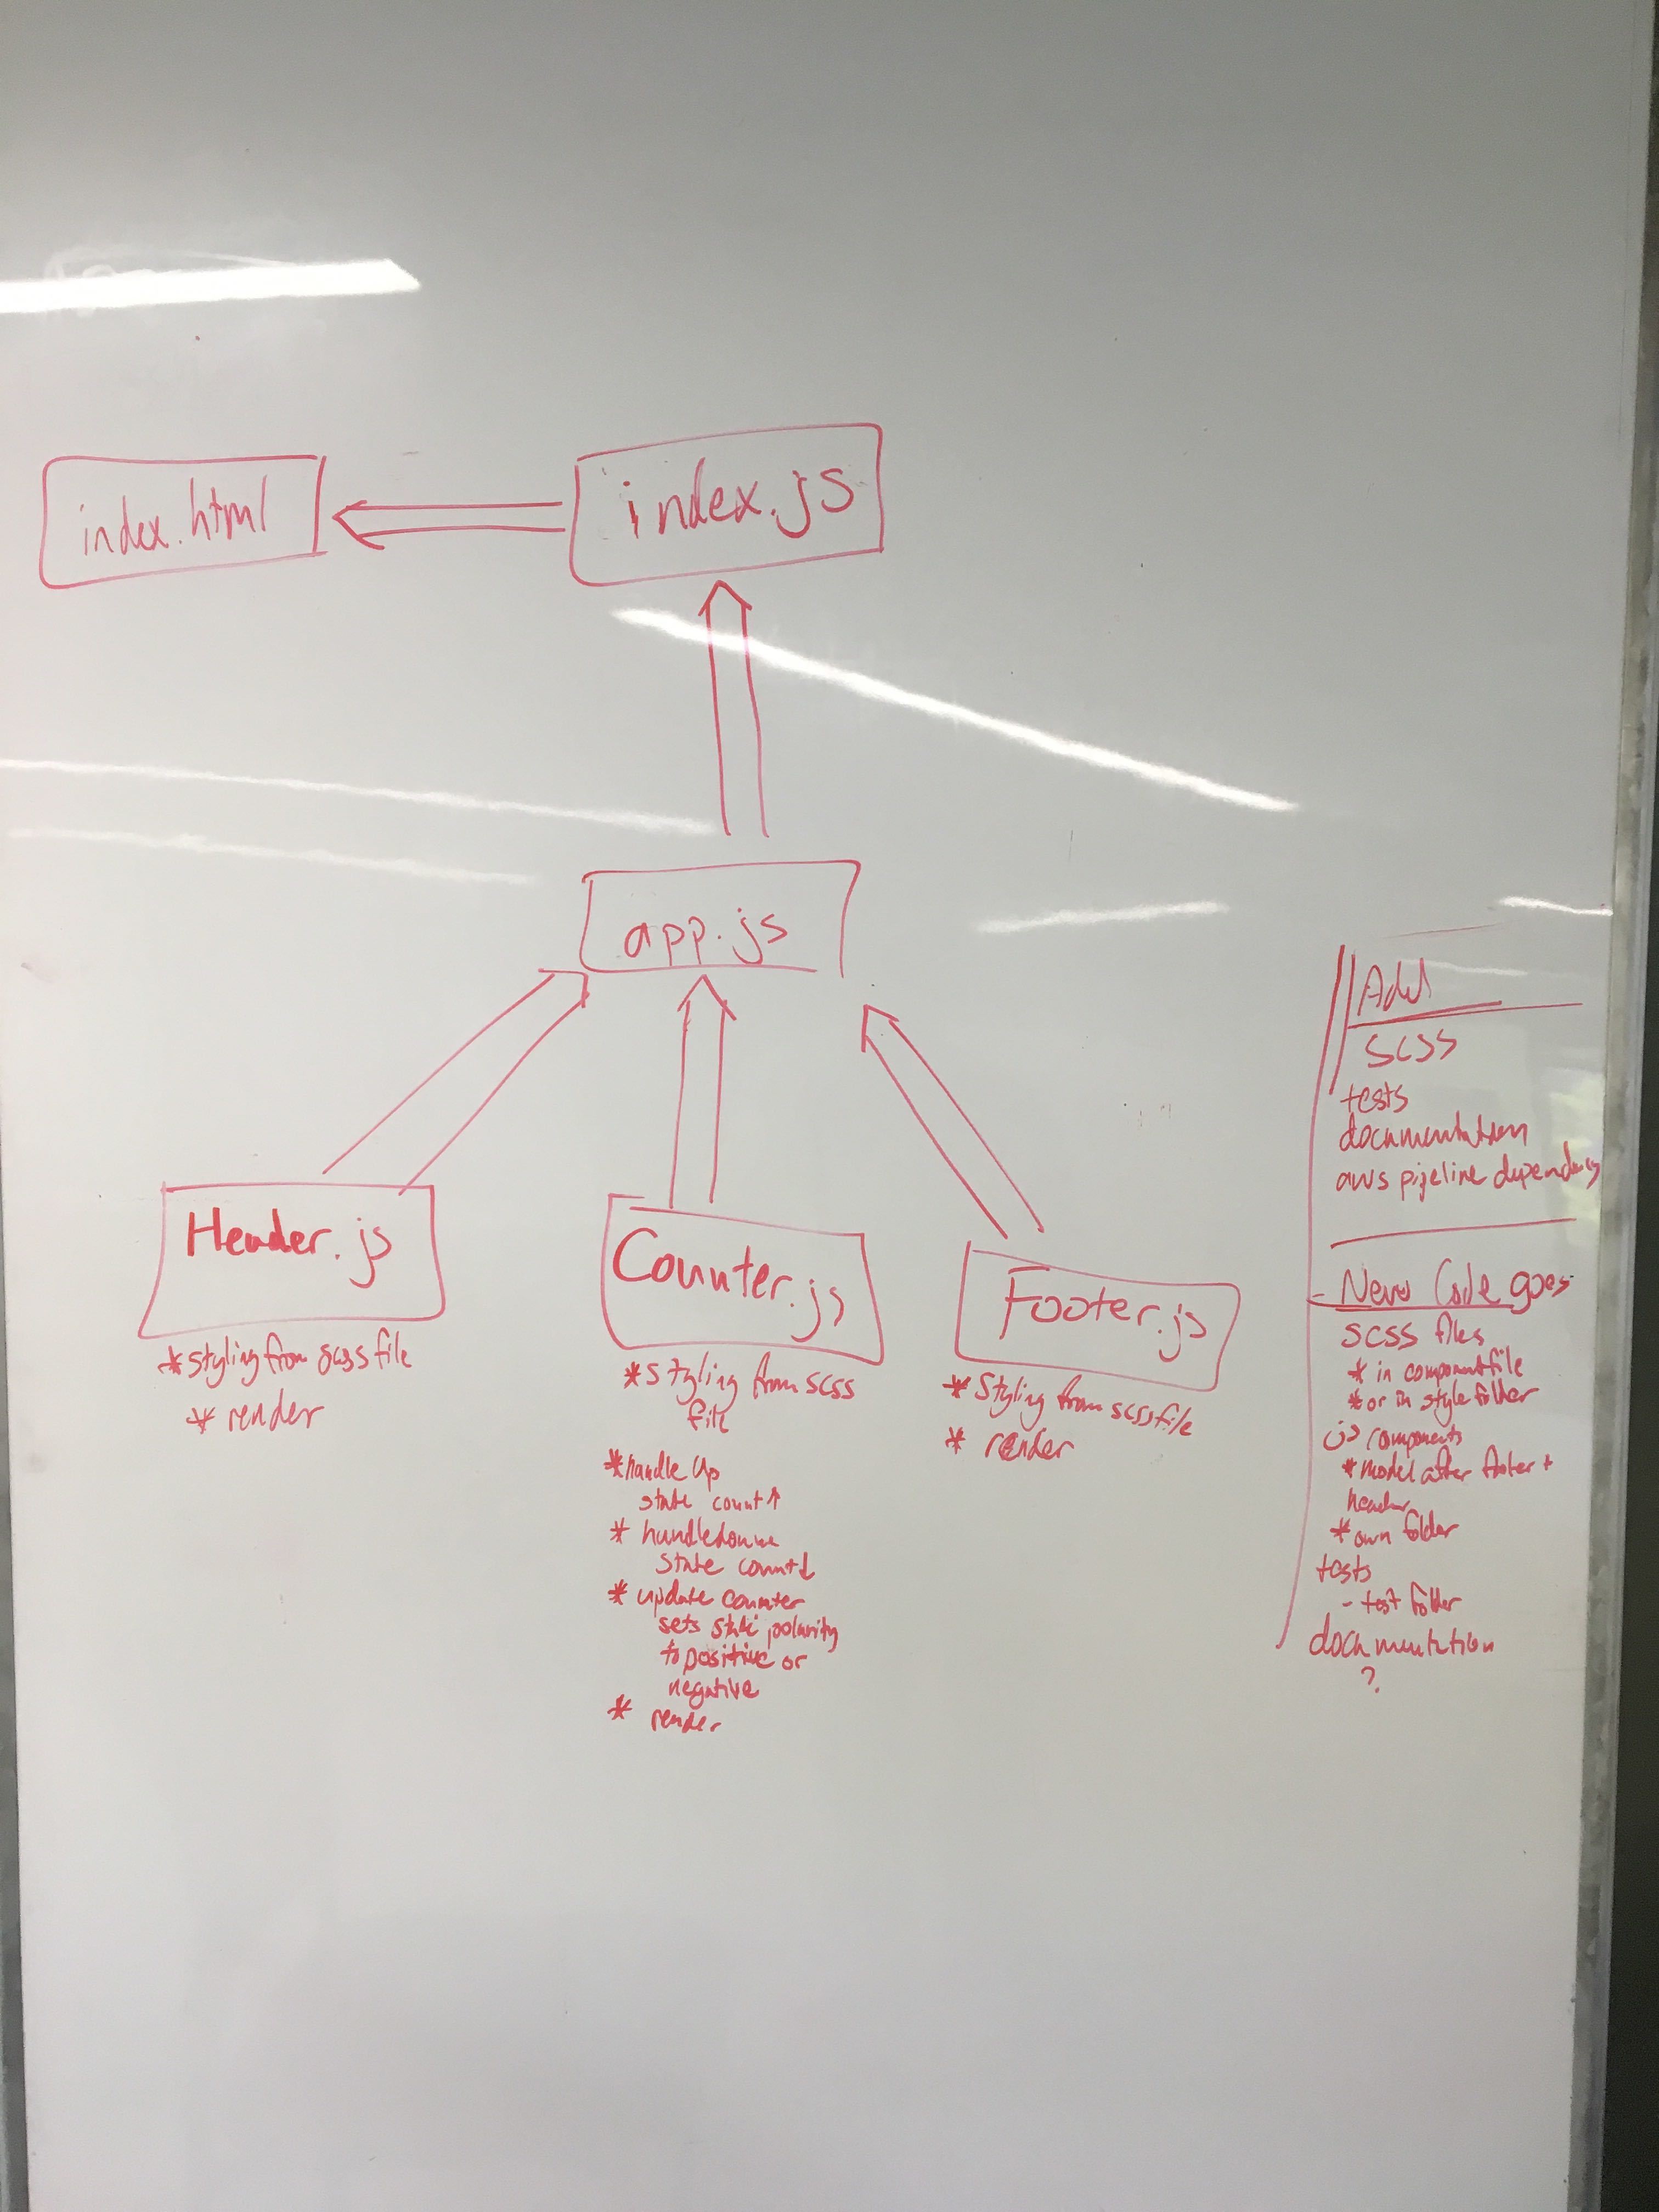 index.html
index.js
app.js
Header.js
* Styling from scss file
* render
Counter.js
* Styling from scss
file
* handle Up
state count↑
* handledown
state count↓
* update counter
sets state polarity
to positive or
negative
* render
Footer.js
* Styling from scss file
* render
Add
SCSS
tests
documentation
aws pipeline dependency
- New Code goes
SCSS files
* in component file
* or in style folder
js components
* model after footer +
header
* own folder
tests
- test folder
documentation
?